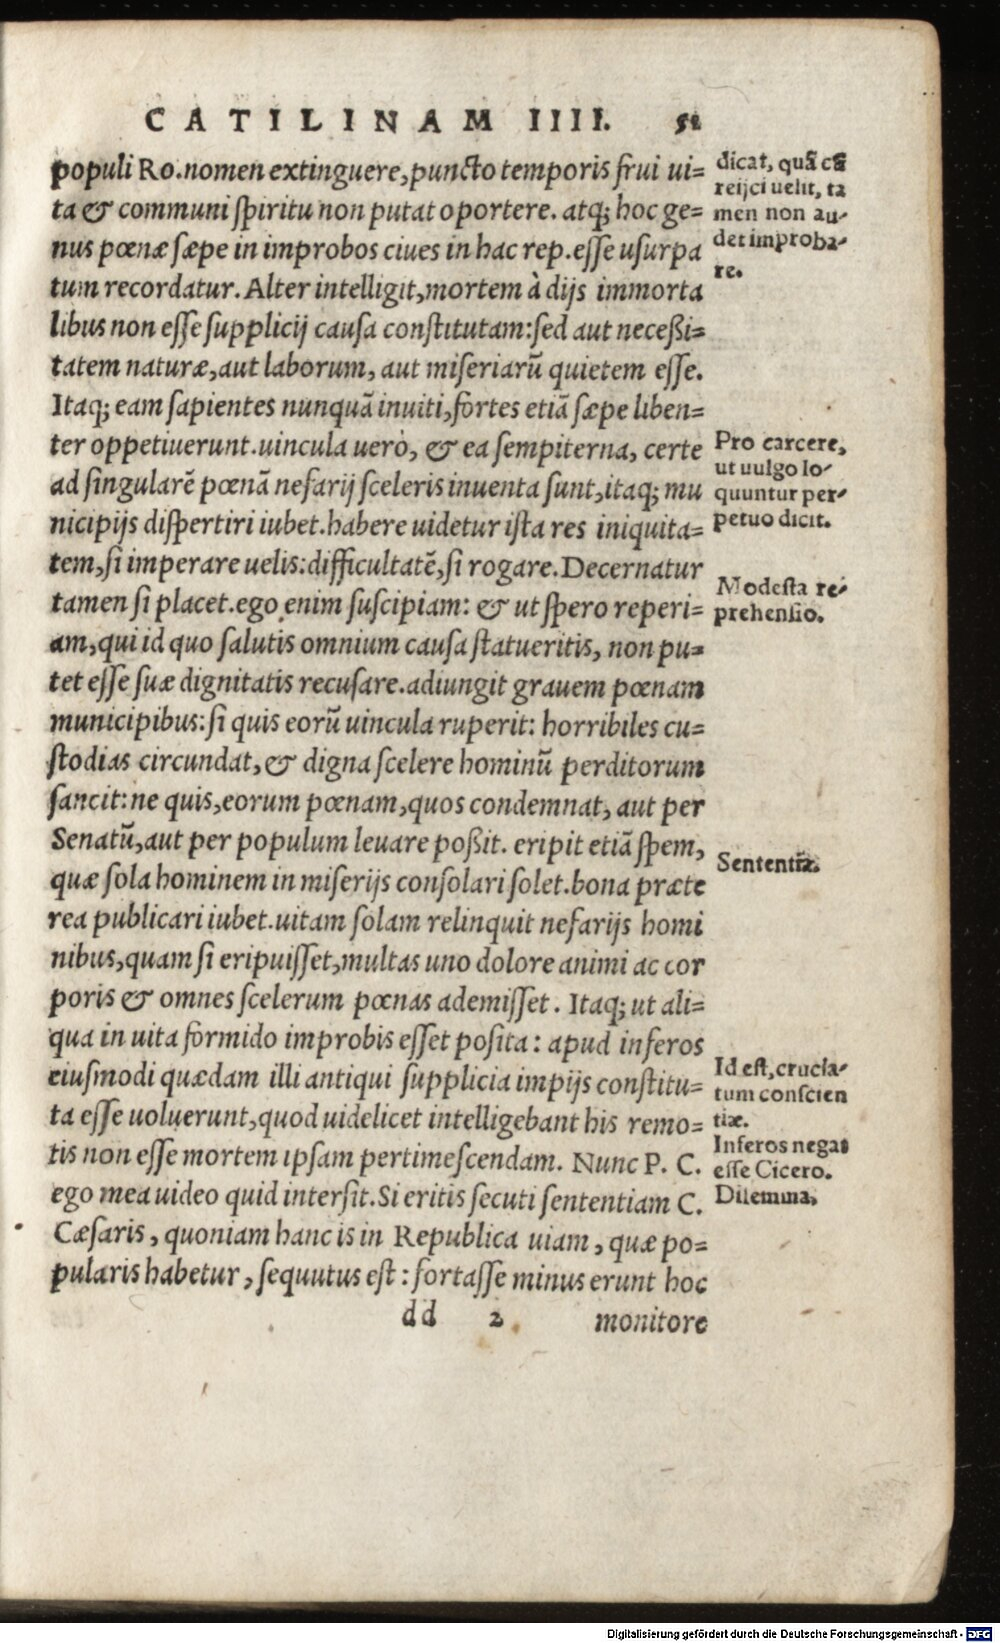 CATILINAM IIII. 51
populi Ro.nomen extinguere,puncto temporis frui ui=
ta & communi spiritu non putat oportere. atq; hoc ge=
nus pœnæ sæpe in improbos ciues in hac rep.esse usurpa
tum recordatur. Alter intelligit,mortem à dijs immorta
libus non esse supplicij causa constitutam:sed aut neceßi=
tatem naturæ,aut laborum, aut miseriarũ quietem esse.
Itaq; eam sapientes nunquã inuiti,fortes etiã sæpe liben=
ter oppetiuerunt.uincula uerò, & ea sempiterna, certe
ad singularẽ pœnã nefarij sceleris inuenta sunt,itaq; mu
nicipijs dispertiri iubet.habere uidetur ista res iniquita=
tem,si imperare uelis:difficultatẽ,si rogare.Decernatur
tamen si placet.ego enim suscipiam: & ut spero reperi=
am,qui id quo salutis omnium causa statueritis, non pu=
tet esse suæ dignitatis recusare.adiungit grauem pœnam
municipibus:si quis eorũ uincula ruperit: horribiles cu=
stodias circundat,& digna scelere hominũ perditorum
sancit:ne quis,eorum pœnam,quos condemnat, aut per
Senatũ,aut per populum leuare poßit. eripit etiã spem,
quæ sola hominem in miserijs consolari solet.bona præte
rea publicari iubet.uitam solam relinquit nefarijs homi
nibus,quam si eripuisset,multas uno dolore animi ac cor
poris & omnes scelerum pœnas ademisset. Itaq; ut ali=
qua in uita formido improbis esset posita: apud inferos
eiusmodi quædam illi antiqui supplicia impijs constitu=
ta esse uoluerunt,quod uidelicet intelligebant his remo=
tis non esse mortem ipsam pertimescendam. Nunc P. C.
ego mea uideo quid intersit.Si eritis secuti sententiam C.
Cæsaris, quoniam hanc is in Republica uiam, quæ po=
pularis habetur, sequutus est: fortasse minus erunt hoc
dd 2 monitore
dicat, quã cũ
reijci uelit, ta
men non au-
det improba-
re.
Pro carcere,
ut uulgo lo-
quuntur per-
petuo dicit.
Modesta re-
prehensio.
Sententiæ.
Id est, crucia-
tum conscien
tiæ.
Inferos negat
esse Cicero.
Dilemma.
Digitalisierung gefördert durch die Deutsche Forschungsgemeinschaft - DFG